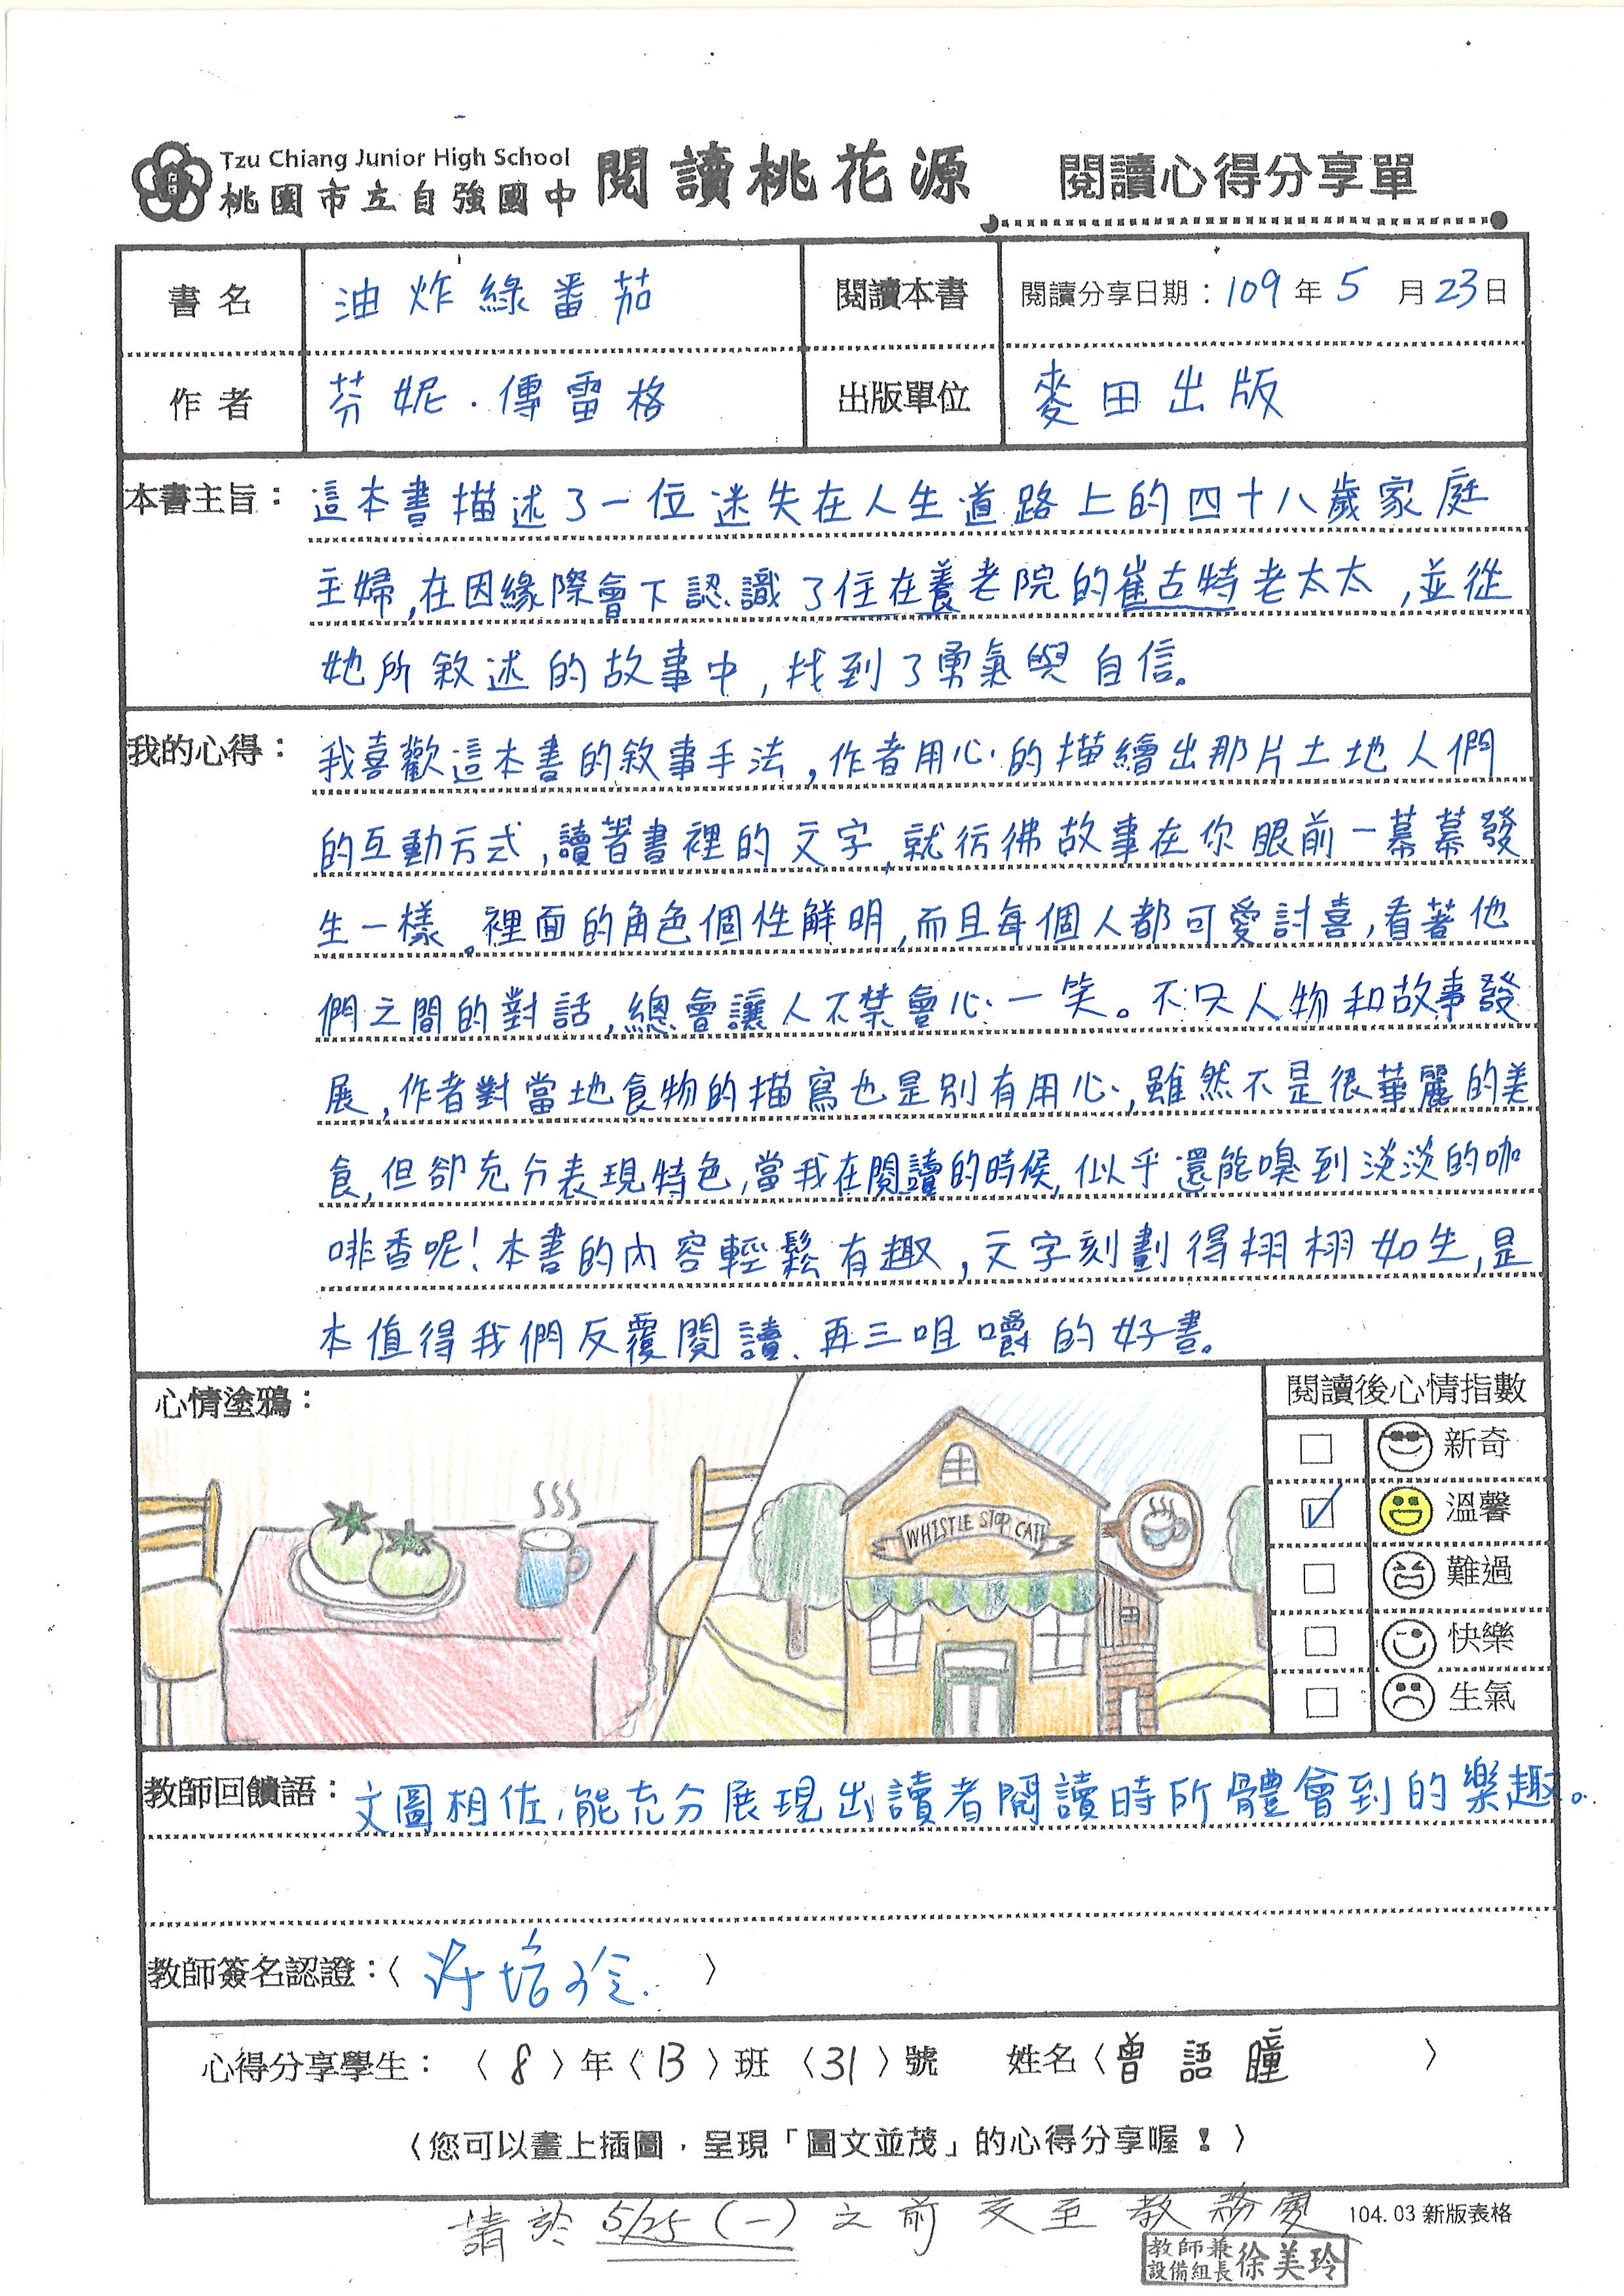 Tzu Chiang Junior High School
桃園市立自強國中 閱讀桃花源 閱讀心得分享單
書名 油炸綠番茄 閱讀本書 閱讀分享日期：109年5月23日
作者 芬妮．傅雷格 出版單位 麥田出版
本書主旨：這本書描述了一位迷失在人生道路上的四十八歲家庭
主婦，在因緣際會下認識了住在養老院的崔古特老太太，並從
她所敘述的故事中，找到了勇氣與自信。
我的心得：我喜歡這本書的敘事手法，作者用心的描繪出那片土地人們
的互動方式，讀著書裡的文字，就彷彿故事在你眼前一幕幕發
生一樣。裡面的角色個性鮮明，而且每個人都可愛討喜，看著他
們之間的對話，總會讓人不禁會心一笑。不只人物和故事發
展，作者對當地食物的描寫也是別有用心，雖然不是很華麗的美
食，但卻充分表現特色，當我在閱讀的時候，似乎還能嗅到淡淡的咖
啡香呢！本書的內容輕鬆有趣，文字刻劃得栩栩如生，是
本值得我們反覆閱讀、再三咀嚼的好書。
心情塗鴉：
WHISTLE STOP CAFE
閱讀後心情指數
新奇
溫馨
難過
快樂
生氣
教師回饋語：文圖相佐，能充分展現出讀者閱讀時所體會到的樂趣。
教師簽名認證：〈許培玲〉
心得分享學生：〈8〉年〈13〉班〈31〉號 姓名〈曾語瞳〉
〈您可以畫上插圖，呈現「圖文並茂」的心得分享喔！〉
請於5/25(一)之前交至教務處
104.03新版表格
教師兼
設備組長 徐美玲